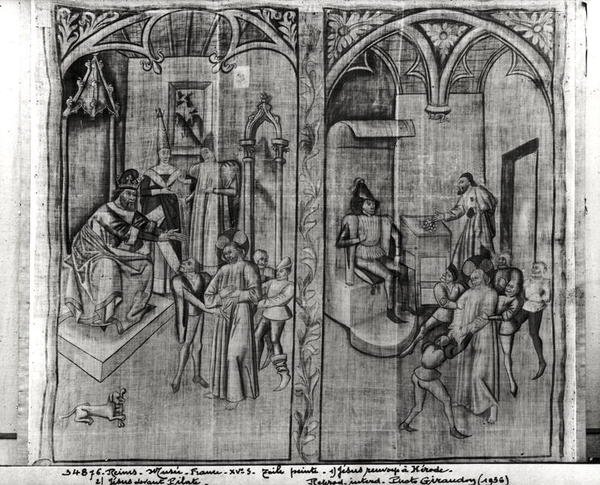 34876. Reims - Musée - France - XVe S. Toile peinte - 1) Jésus renvoyé à Hérode.
2) Jésus devant Pilate. Reprod. interd. Photo Giraudon (1936)